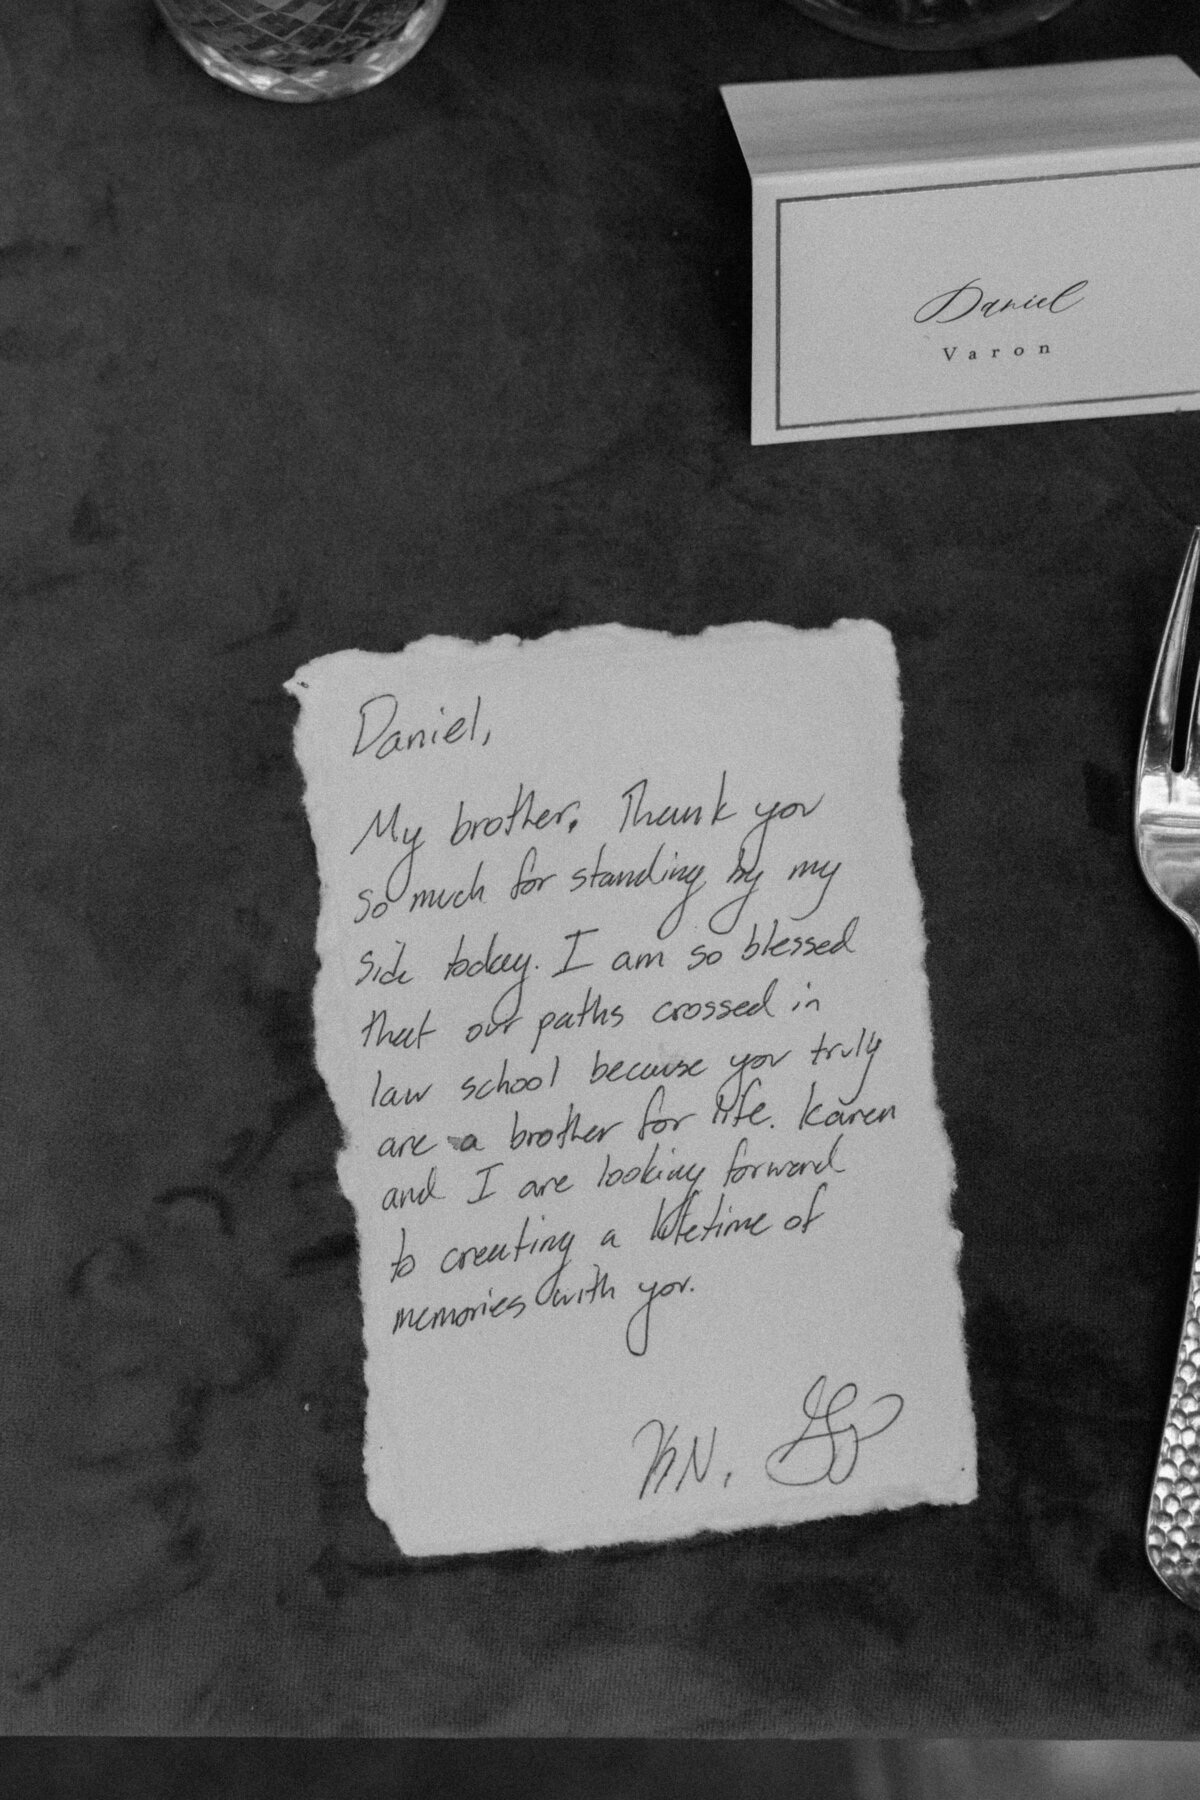 Daniel
Varon
Daniel,
My brother, Thank you
so much for standing by my
side today. I am so blessed
that our paths crossed in
law school because you truly
are a brother for life. Karen
and I are looking forward
to creating a lifetime of
memories with you.